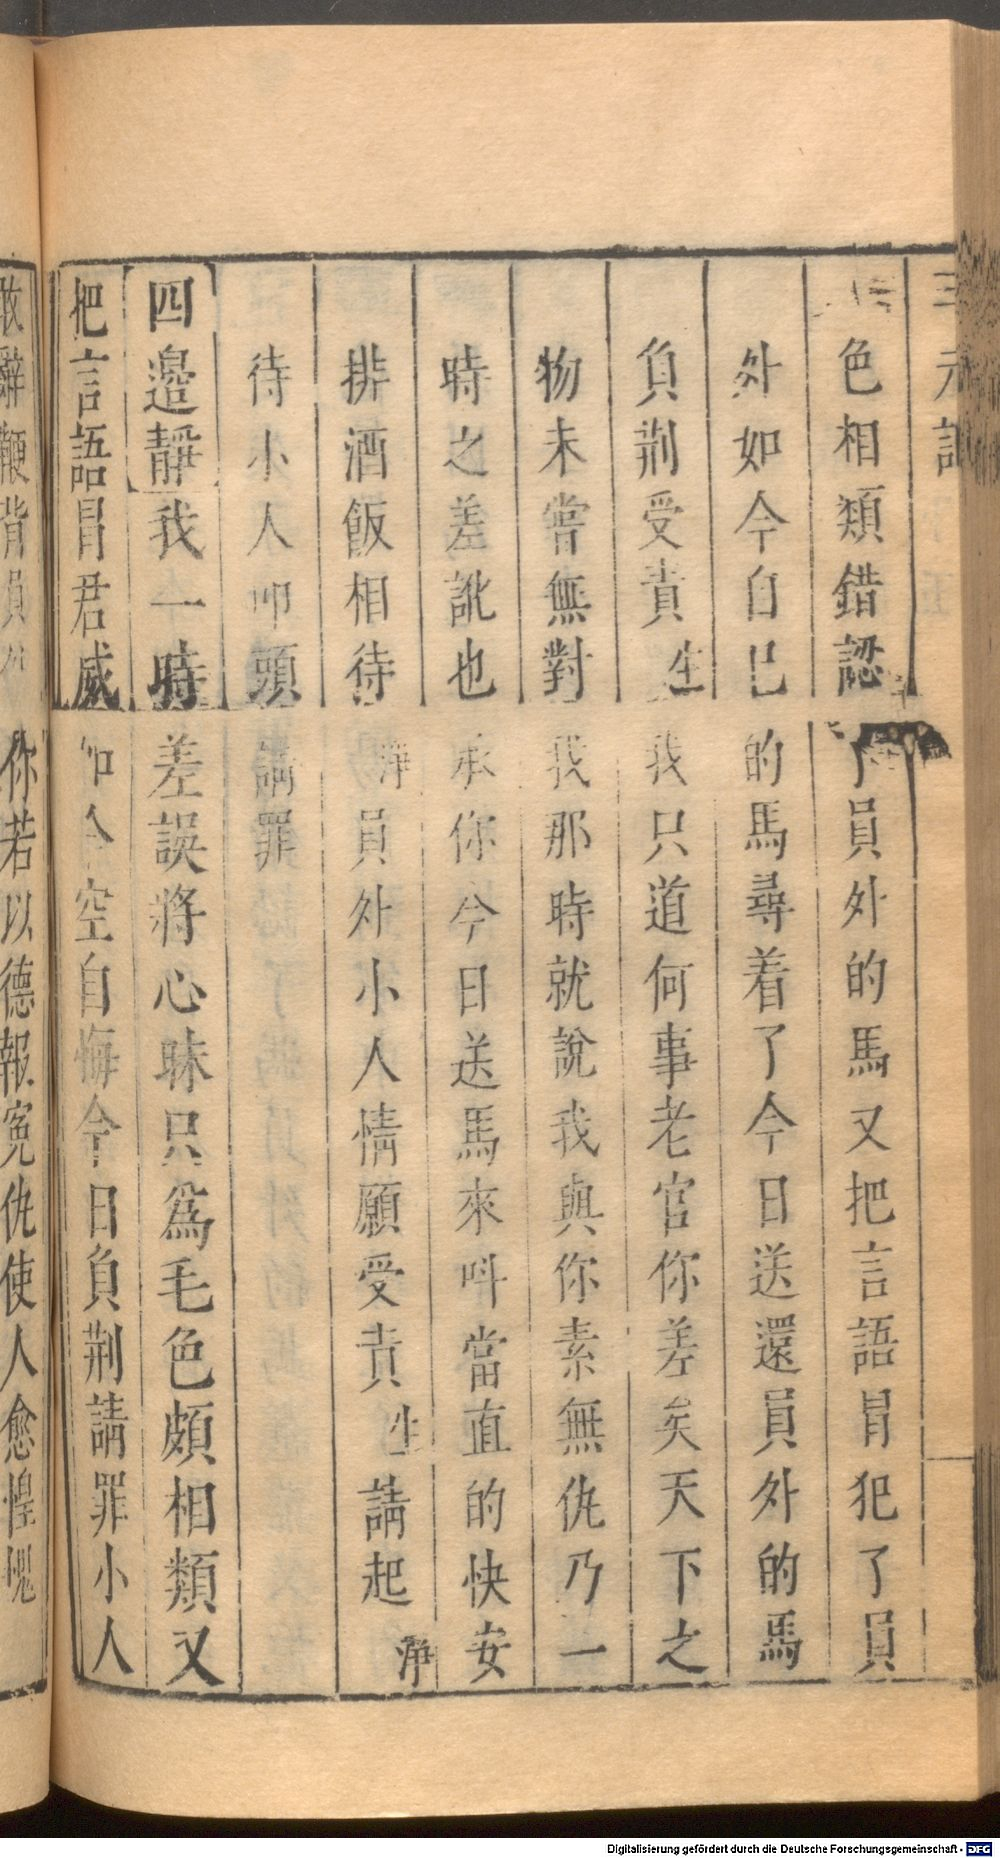 三元記
色相類錯認了員外的馬又把言語冒犯了員
外如今自巳的馬尋着了今日送還員外的馬
負荆受責生我只道何事老官你差矣天下之
物未嘗無對我那時就說我與你素無仇乃一
時之差訛也承你今日送馬來呌當直的快安
排酒飯相待淨員外小人情願受責生請起淨
待小人叩頭請罪
四邉靜我一時差誤將心昧只爲毛色頗相類又
把言語冒君威如今空自悔今日負荆請罪小人
敢辭鞭背員外你若以德報寃仇使人愈惶愧
Digitalisierung gefördert durch die Deutsche Forschungsgemeinschaft - DFG